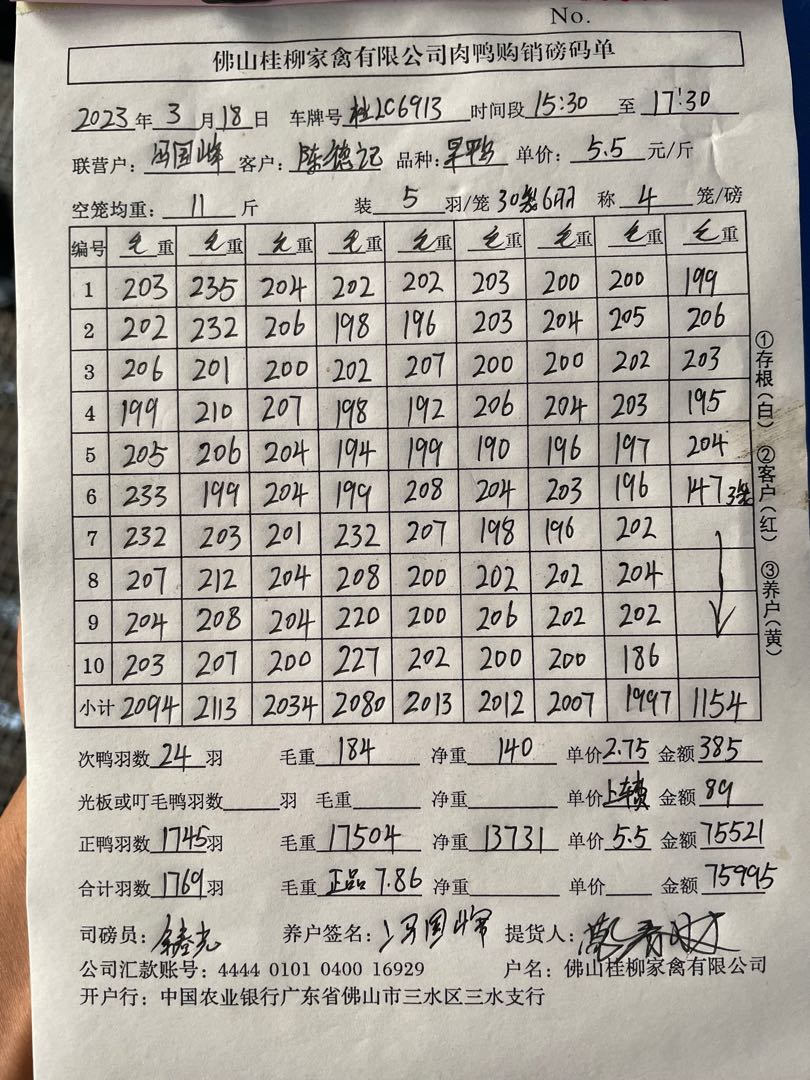 No.
佛山桂柳家禽有限公司肉鸭购销磅码单
2023年 3 月 18 日 车牌号 桂LC6913 时间段 15:30 至 17:30
联营户：冯国峰 客户：陈德记 品种： 单价：5.5 元/斤
空笼均重：11 斤 装 5 羽/笼 30笼6羽 称 4 笼/磅
编号 毛重 毛重 毛重 毛重 毛重 毛重 毛重 毛重 毛重
1 203 235 204 202 202 203 200 200 199
2 202 232 206 198 196 203 204 205 206
3 206 201 200 202 207 200 200 202 203
4 199 210 207 198 192 206 204 203 195
5 205 206 204 194 199 190 196 197 204
6 233 199 204 199 208 204 203 196 147 3笼
7 232 203 201 232 207 198 196 202
8 207 212 204 208 200 202 202 204
9 204 208 204 220 200 206 202 202
10 203 207 200 227 202 200 200 186
小计 2094 2113 2034 2080 2013 2012 2007 1997 1154
次鸭羽数 24 羽 毛重 184 净重 140 单价 2.75 金额 385
光板或叮毛鸭羽数 羽 毛重 净重 单价 上车费 金额 89
正鸭羽数 1745 羽 毛重 17504 净重 13731 单价 5.5 金额 75521
合计羽数 1769 羽 毛重 正品 7.86 净重 单价 金额 75995
司磅员： 养户签名：冯国峰 提货人：
公司汇款账号：4444 0101 0400 16929 户名：佛山桂柳家禽有限公司
开户行：中国农业银行广东省佛山市三水区三水支行
①存根（白） ②客户（红） ③养户（黄）